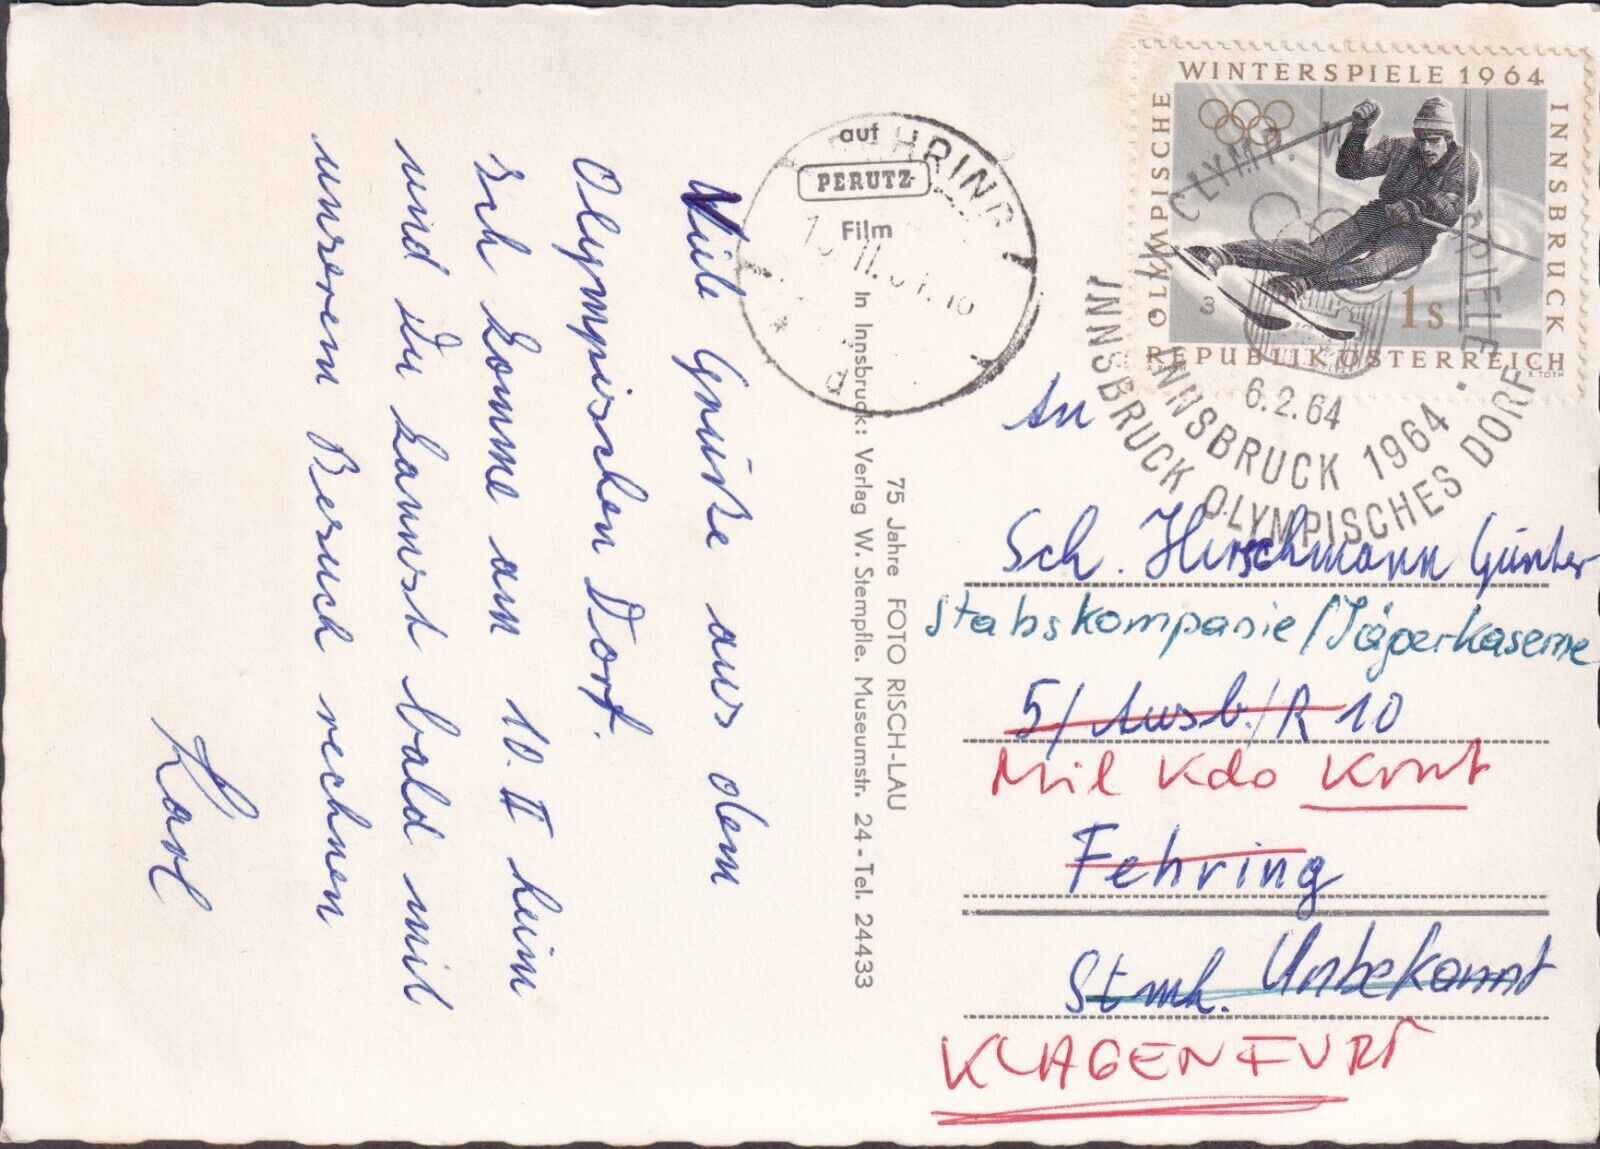 Viele Grüße aus dem
Olympischen Dorf.
Ich komme am 10. II heim
und du kannst bald mit
unserem Besuch rechnen
Karl
auf
PERUTZ
Film
In Innsbruck: Verlag W. Stempfle. Museumstr. 24 - Tel. 24433
75 Jahre FOTO RISCH-LAU
FEHRING
OLYMPISCHE WINTERSPIELE 1964 INNSBRUCK
3
1S
REPUBLIK ÖSTERREICH
R. TOTH
OLYMP. WINTERSPIELE
6.2.64
INNSBRUCK 1964
INNSBRUCK OLYMPISCHES DORF
An
Sch. Hirschmann Günter
Stabskompanie/Jägerkaserne
5/Ausb./R 10
Mil Kdo Krnt
Fehring
Stmk. Unbekannt
KLAGENFURT